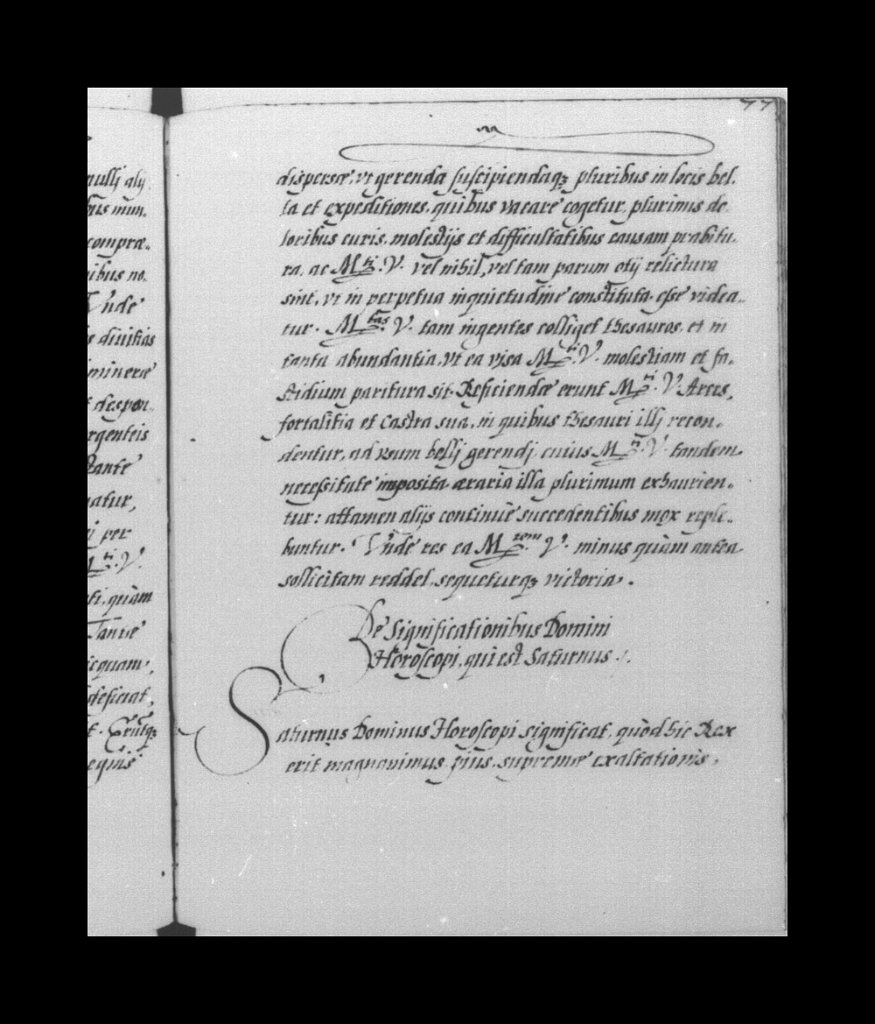 77
nullj alij
bus mun.
compræ.
ibus no.
Vnde
s diuitias
mineræ
t despon.
rgenteis
tante
natur,
ij per
M.ti V.
ti, quàm
Tante
icquam,
deficiat,
t. Eruntq3
equis
dispersæ, vt gerenda suscipiendaq3 pluribus in locis bel.
la et expeditiones, quibus vacare cogetur, plurimis do
loribus curis, molestijs et difficultatibus causam præbitu.
ra, ac M.ti V. vel nihil, vel tam parum otij relictura
sint, vt in perpetua inquietudine constituta esse videa.
tur. M.tas V. tam ingentes colliget thesauros, et in
tanta abundantia, vt ea visa M.ti V. molestiam et fa.
stidium paritura sit. Reficiendæ erunt M.ti V. Arces,
fortalitia et Castra sua, in quibus thesauri illj recon.
dentur, ad vsum bellj gerendj, cuius M.ti V. tandem
necessitate imposita æraria illa plurimum exhaurien.
tur: attamen alijs continuè succedentibus mox reple.
buntur. Vnde res ea M.tem V. minus quàm antea
sollicitam reddet, sequeturq3 victoria.
De Significationibus Domini
Horoscopi, qui est Saturnus.
Saturnus Dominus Horoscopi significat, quòd hic Rex
erit magnanimus, pius, supremæ exaltationis,